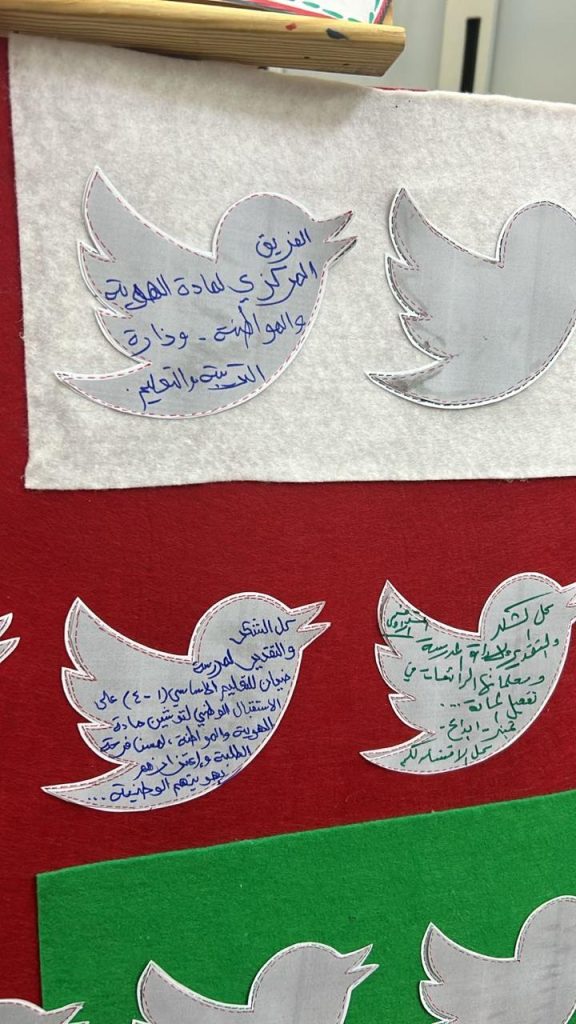 الفريق
المركزي لمادة الهوية
والمواطنة - وزارة
التربية والتعليم.
كل الشكر
والتقدير لمدرسة
ضيان للتعليم الأساسي (١-٤) على
الاستقبال الوطني لتدشين مادة
الهوية والمواطنة، لمسنا فرحة
الطلبة وإعتزازهم
بهويتهم الوطنية...
كل الشكر
والتقدير لمدرسة
ومعلماتها الرائعات في
تفعيل المادة...
تميز - ابداع -
كل الامتنان لكم